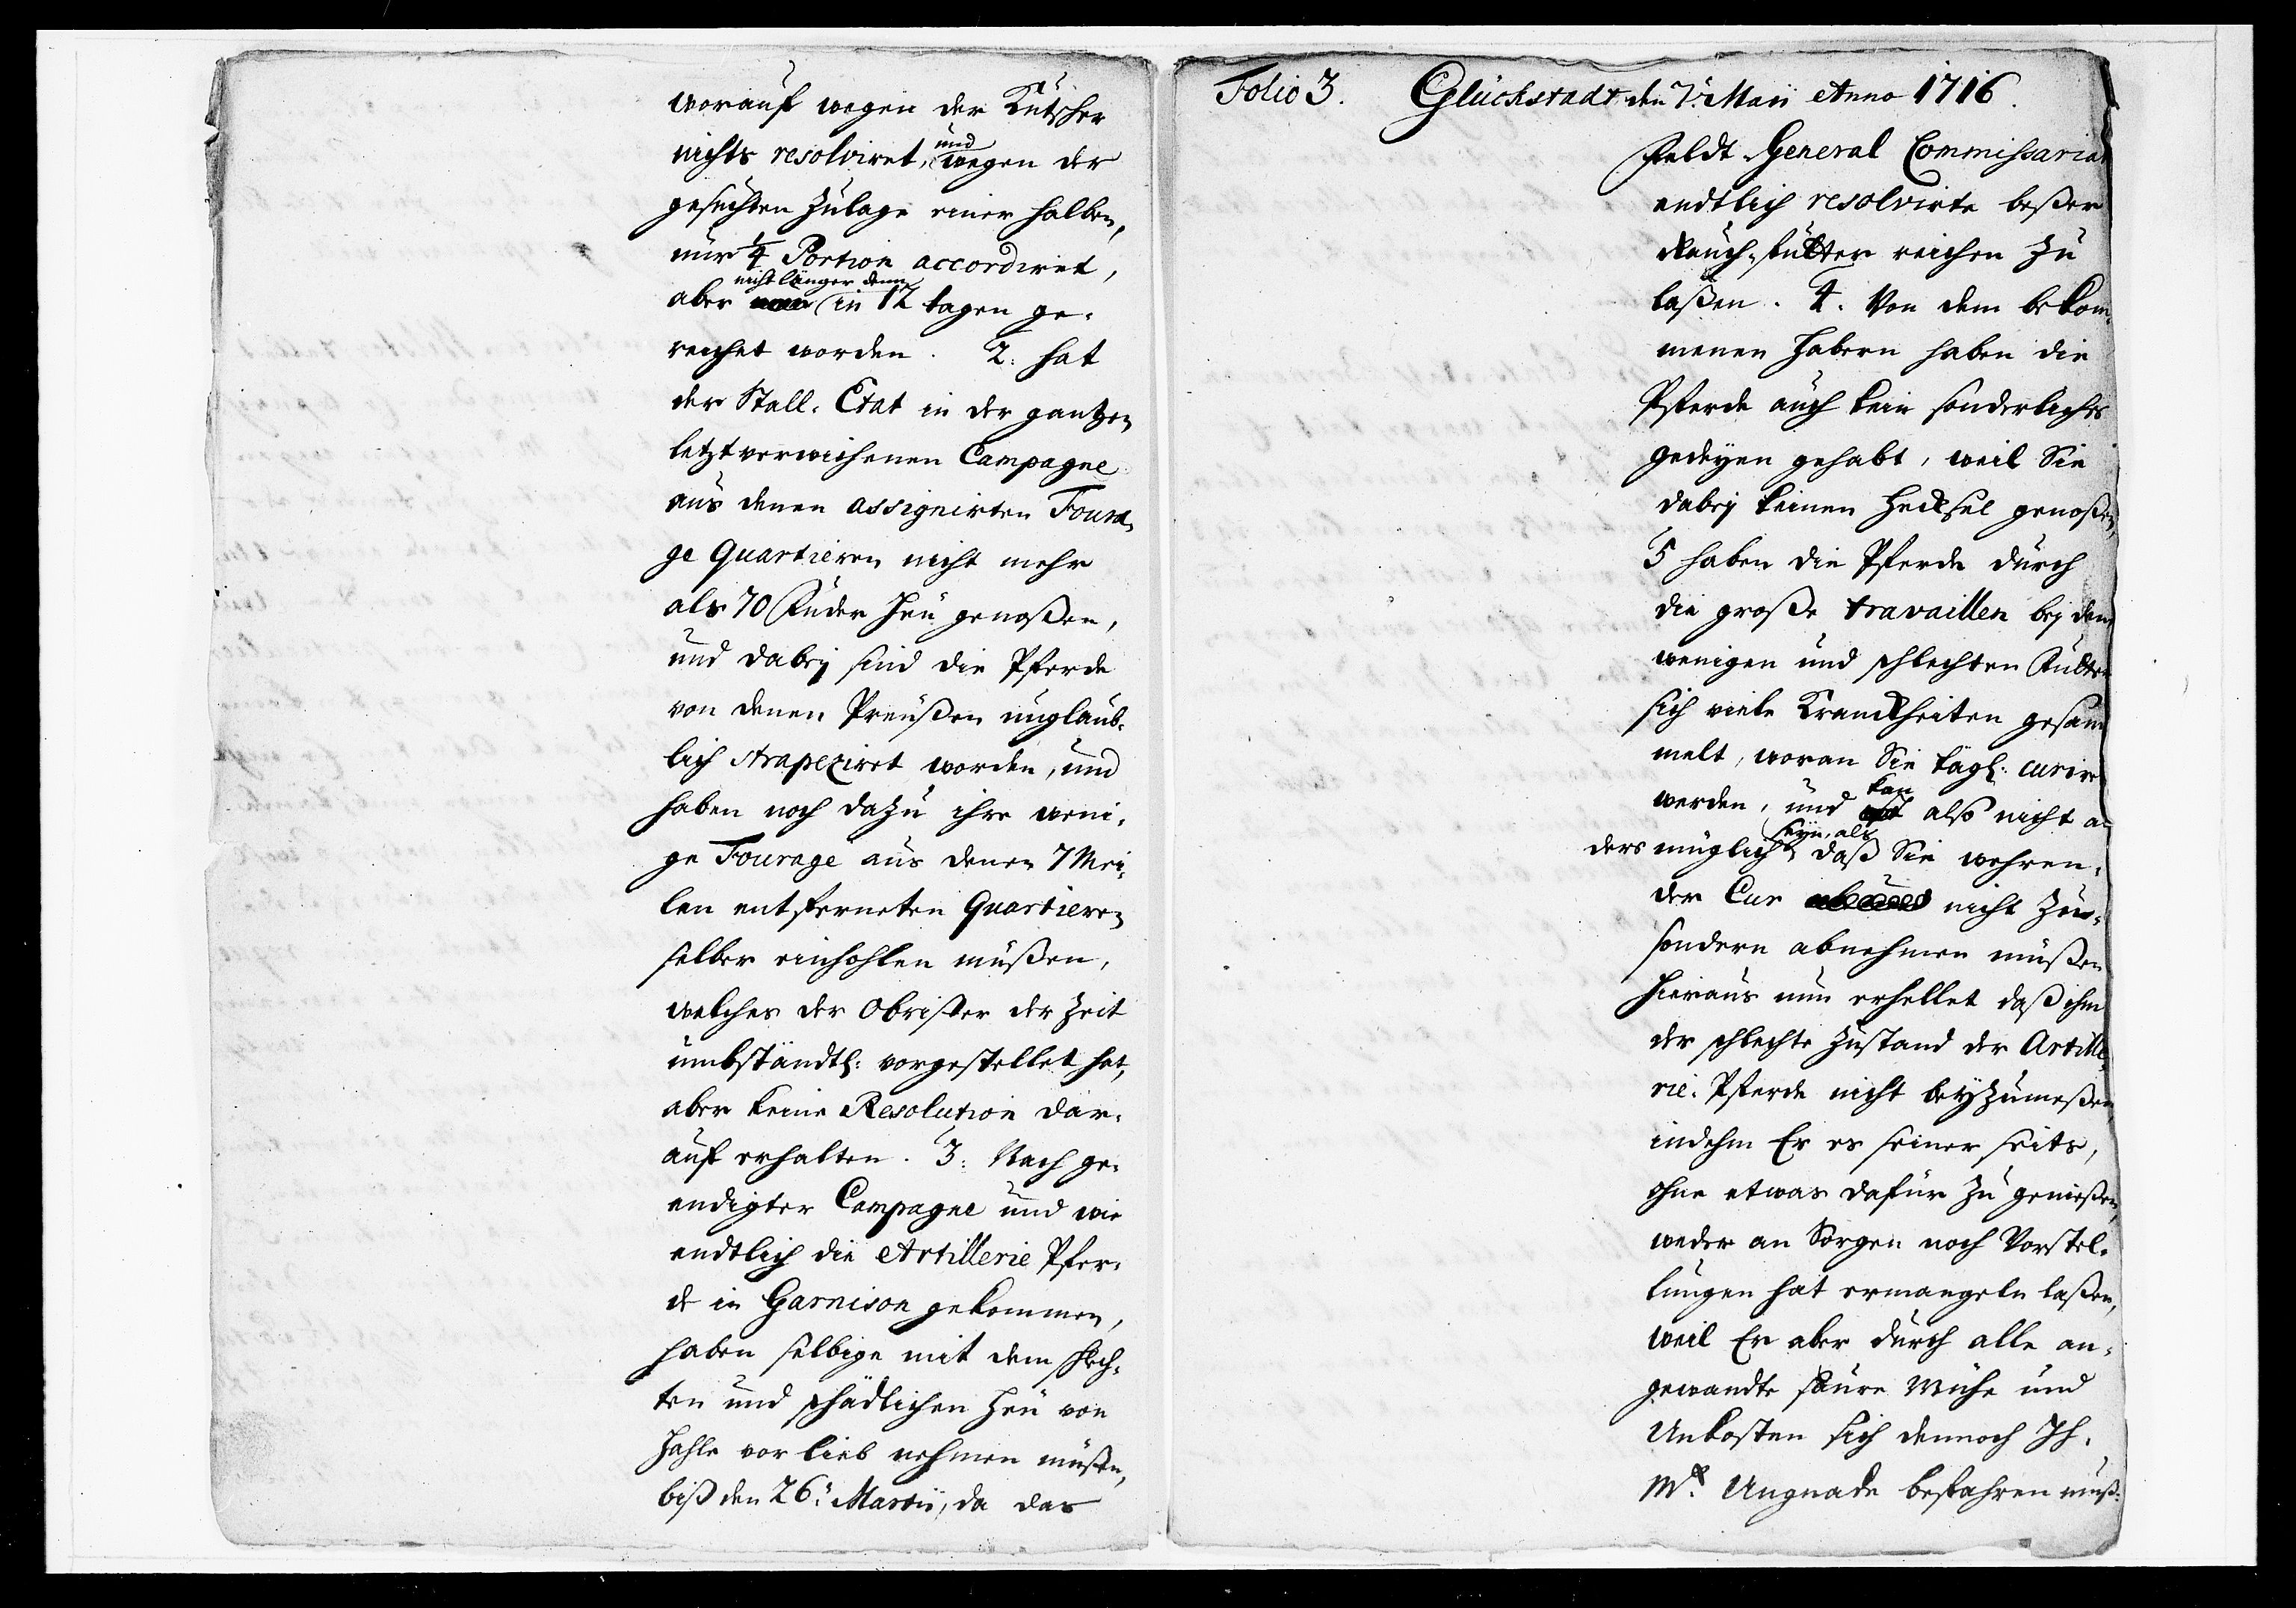 worauf wegen der Kutscher
nichts resolviret, und wegen der
gesuchten Zulage einer halben,
nur 1/4 Portion accordiret,
aber nicht länger denn in 12 tagen ge-
reichet worden. 2. hat
der Stall-Etat in der gantzen
letztverwichenen Campagne
aus denen assignirten Foura-
ge Quartieren nicht mehr
als 70 Fuder Heu genoßen,
und dabey sind die Pferde
von denen Preußen unglaub-
lich strapeziret worden, und
haben noch dazu ihre weni-
ge Fourage aus denen 7 Mei-
len entferneten Quartieren
selber einhohlen müßen,
welches der Obrister der Zeit
umbständtl: vorgestellet hat,
aber keine Resolution dar-
auf erhalten. 3. Nach ge-
endigter Campagne und wie
endtlich die Artillerie Pfer-
de in Garnison gekommen,
haben selbige mit dem schlech-
ten und schädlichen Heu von
Hahle vor lieb nehmen müßen,
biß den 26. Martii, da das
Folio 3. Glückstadt den 7. Maii Anno 1716.
Feldt-General Commissariat
endtlich resolvirte beßer
Rauch-futter reichen zu
laßen. 4. Von dem bekom-
menen Habern haben die
Pferde auch kein sonderliches
gedeyen gehabt, weil Sie
dabey keinen Hecksel genoßen,
5 haben die Pferde durch
die große travaillen bey dem
wenigen und schlechten Futter
sich viele Kranckheiten gesam
melt, woran Sie tägl: curiret
werden, und kan also nicht an
ders müglich seyn, als daß Sie wehren-
der Cur nicht zu-
sondern abnehmen müßen
Hieraus nun erhellet daß ihm
der schlechte Zustand der Artille-
rie-Pferde nicht beyzumeßen,
indehm Er es seiner seits,
ohne etwas dafür zu genießen,
weder an Sorgen noch Vorstel-
lungen hat ermangeln laßen,
weil Er aber durch alle an-
gewandte saure Mühe und
Unkosten sich dennoch Ih.
M. Ungnade befahren muß-